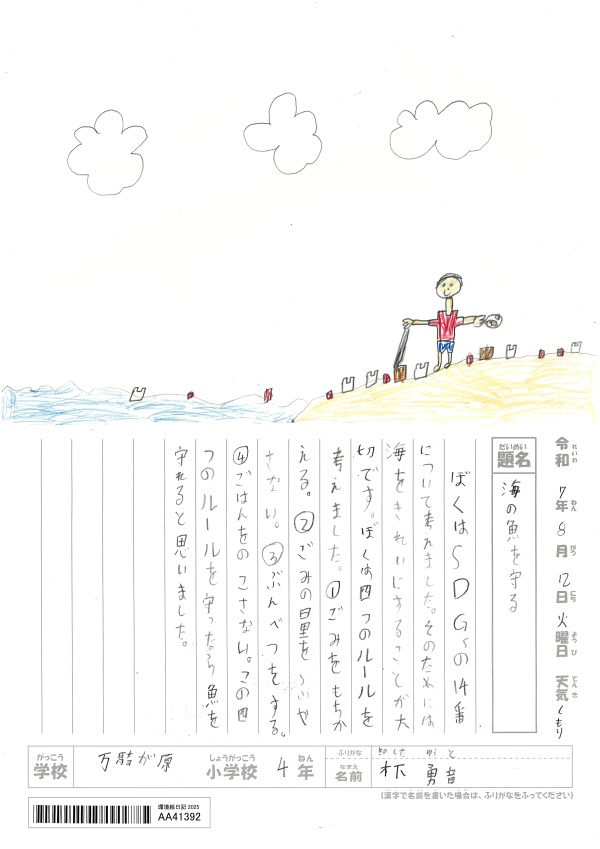 令和 7年 8月 12日 火曜日 天気 くもり
れいわ ねん がつ にち ようび てんき
だいめい
題名 海の魚を守る
ぼくはSDGsの14番
について考えました。そのためには
海をきれいにすることが大
切です。ぼくは四つのルールを
考えました。①ごみをもちか
える。②ごみの量をふや
さない。③ぶんべつをする。
④ごはんをのこさない。この四
つのルールを守ったら魚を
守れると思いました。
がっこう しょうがっこう ねん
学校 万騎が原 小学校 4年
ふりがな きのした ゆうと
なまえ
名前 木下 勇音
(漢字で名前を書いた場合は、ふりがなをふってください)
環境絵日記 2025
AA41392